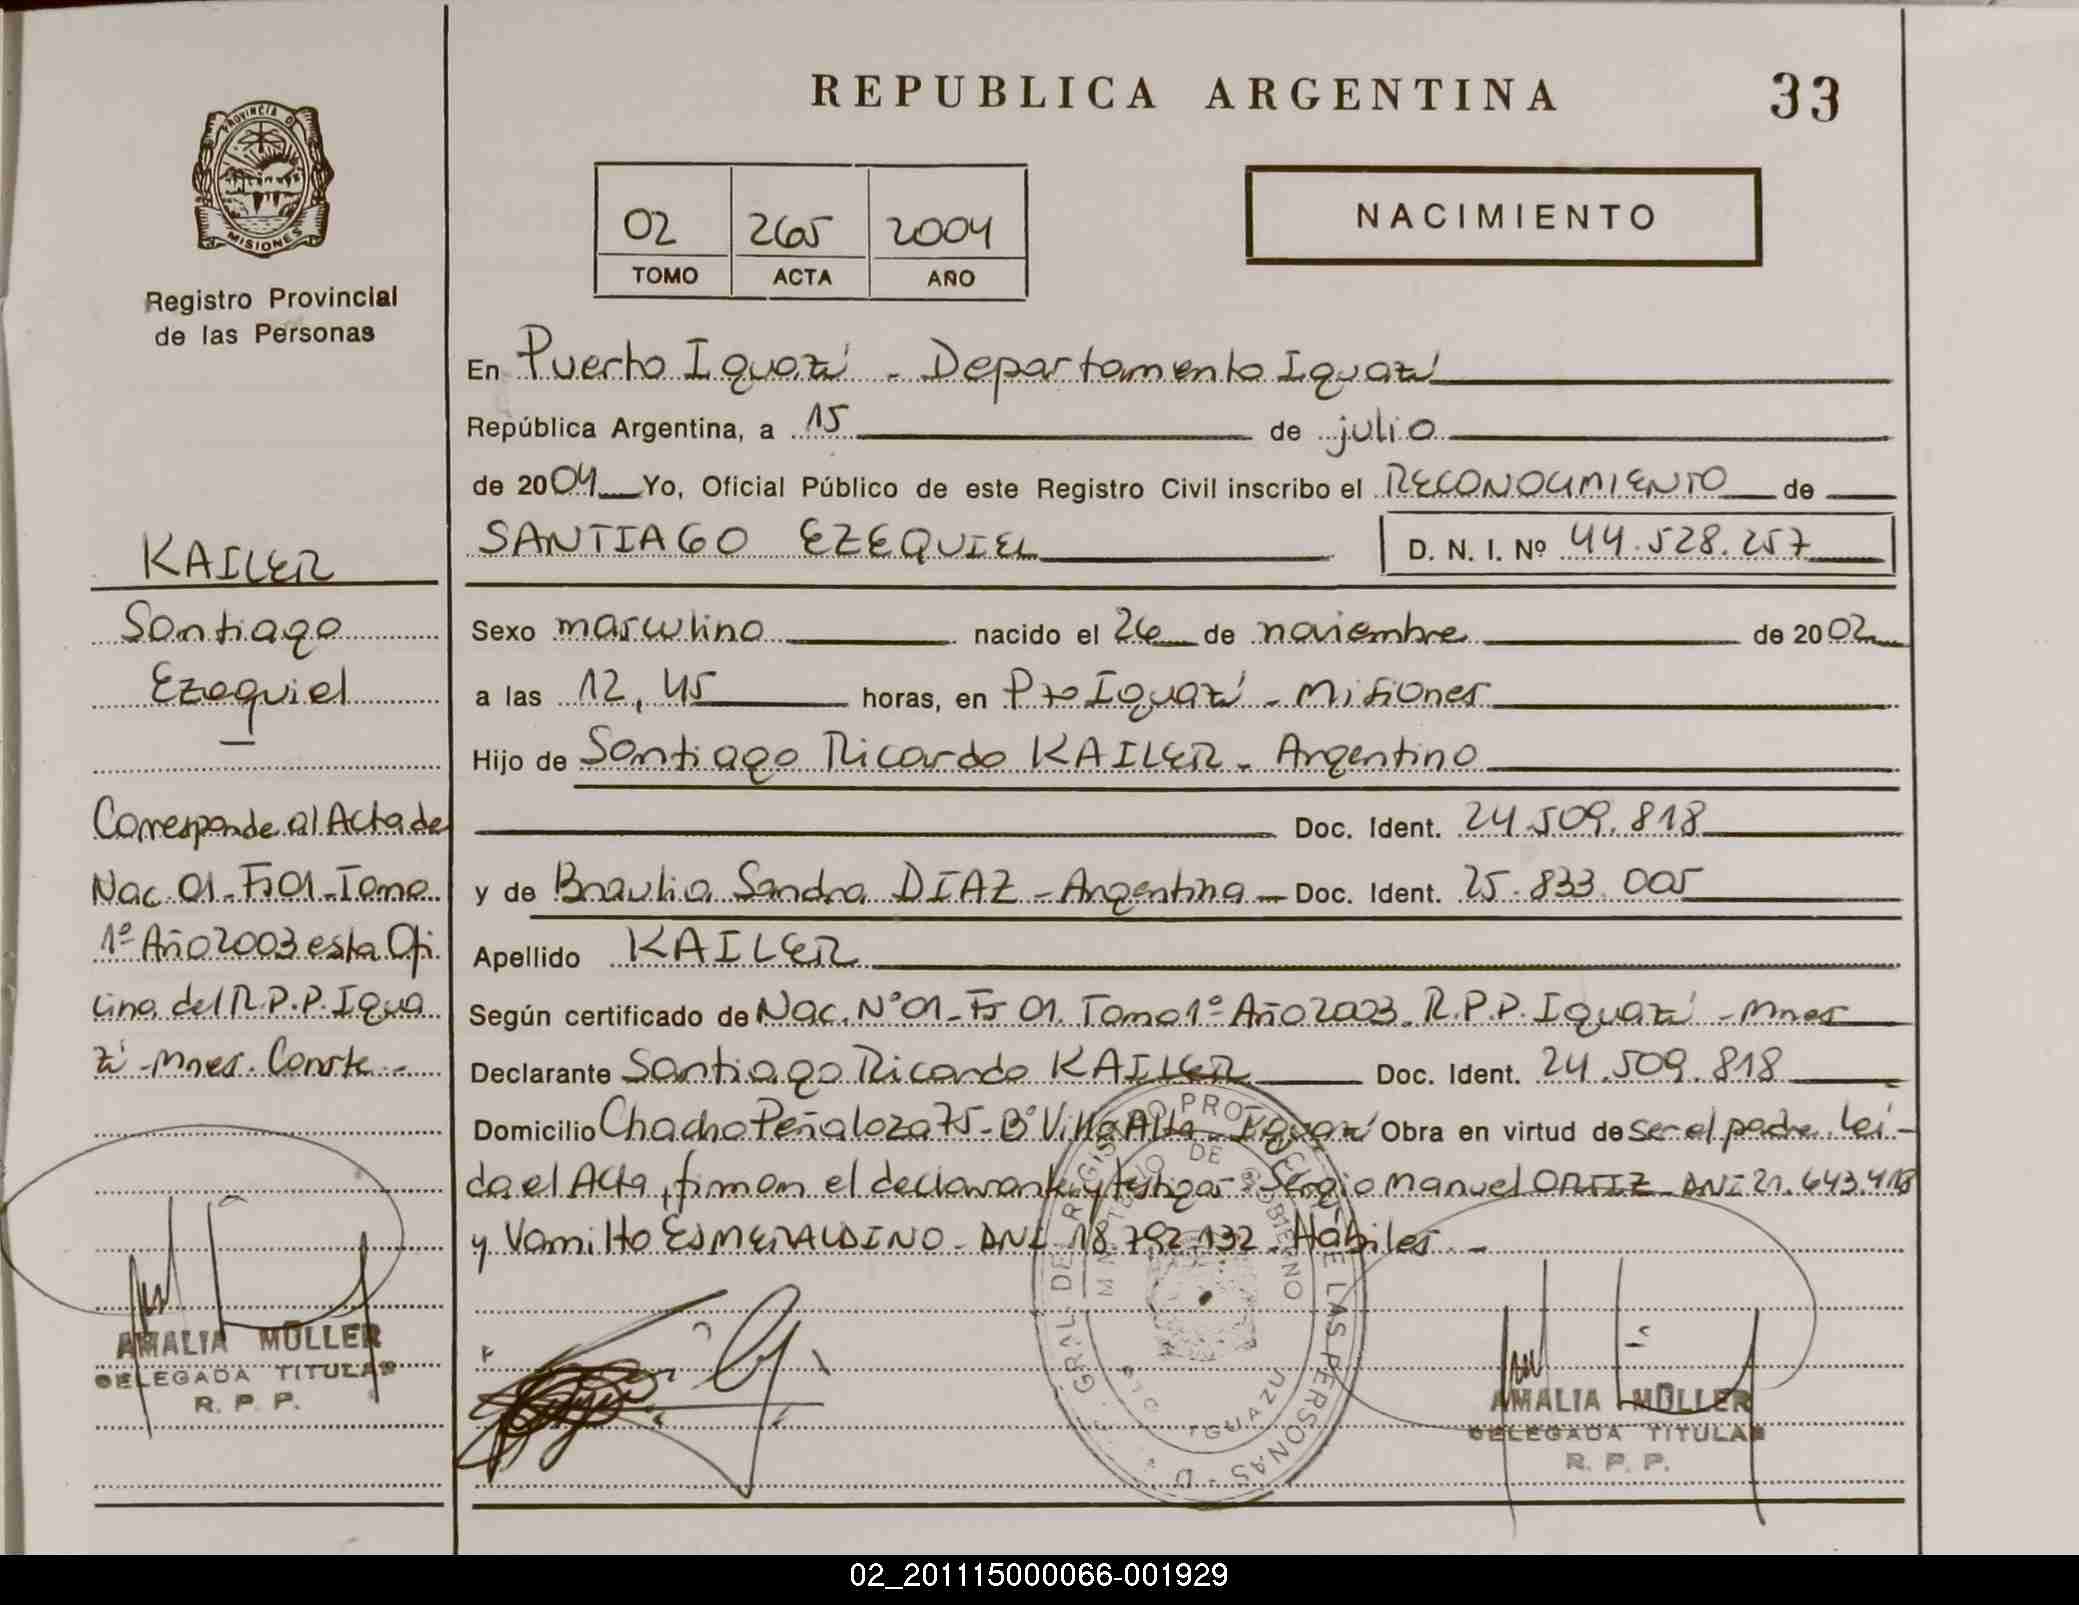 REPUBLICA ARGENTINA
33
PROVINCIA D
MISIONES
Registro Provincial
de las Personas
02 265 2004
TOMO ACTA AÑO
NACIMIENTO
En Puerto Iguazú - Departamento Iguazú
República Argentina, a 15 de julio
de 2004 Yo, Oficial Público de este Registro Civil inscribo el RECONOCIMIENTO de
SANTIAGO EZEQUIEL D. N. I. Nº 44.528.257
Sexo masculino nacido el 26 de noviembre de 2002
a las 12,45 horas, en Pto Iguazú - Misiones
Hijo de Santiago Ricardo KAILER - Argentino
Doc. Ident. 24.509.818
y de Braulia Sandra DIAZ - Argentina - Doc. Ident. 25.833.005
Apellido KAILER
Según certificado de Nac. N°01 - Fs 01. Tomo 1º Año 2003. R.P.P. Iguazú - Mnes
Declarante Santiago Ricardo KAILER Doc. Ident. 24.509.818
Domicilio Chacho Peñaloza 75 - B° Villa Alta - Iguazú Obra en virtud de ser el padre. Leí-
da el Acta, firman el declarante y testigos: Sergio Manuel ORTIZ - DNI 21.643.418
y Vamilto ESMERALDINO - DNI 18.792.132 - Hábiles. -
KAILER
Santiago
Ezequiel
Corresponde al Acta de
Nac. 01 - Fs 01 - Tomo
1º Año 2003 esta Ofi
cina del R.P.P. Igua
zú - Mnes. Conste. -
AMALIA MÜLLER
DELEGADA TITULAR
R. P. P.
GRAL. DEL REGISTRO PROVINCIAL DE LAS PERSONAS
MINISTERIO DE GOBIERNO
IGUAZU
AMALIA MÜLLER
DELEGADA TITULAR
R. P. P.
02_201115000066-001929